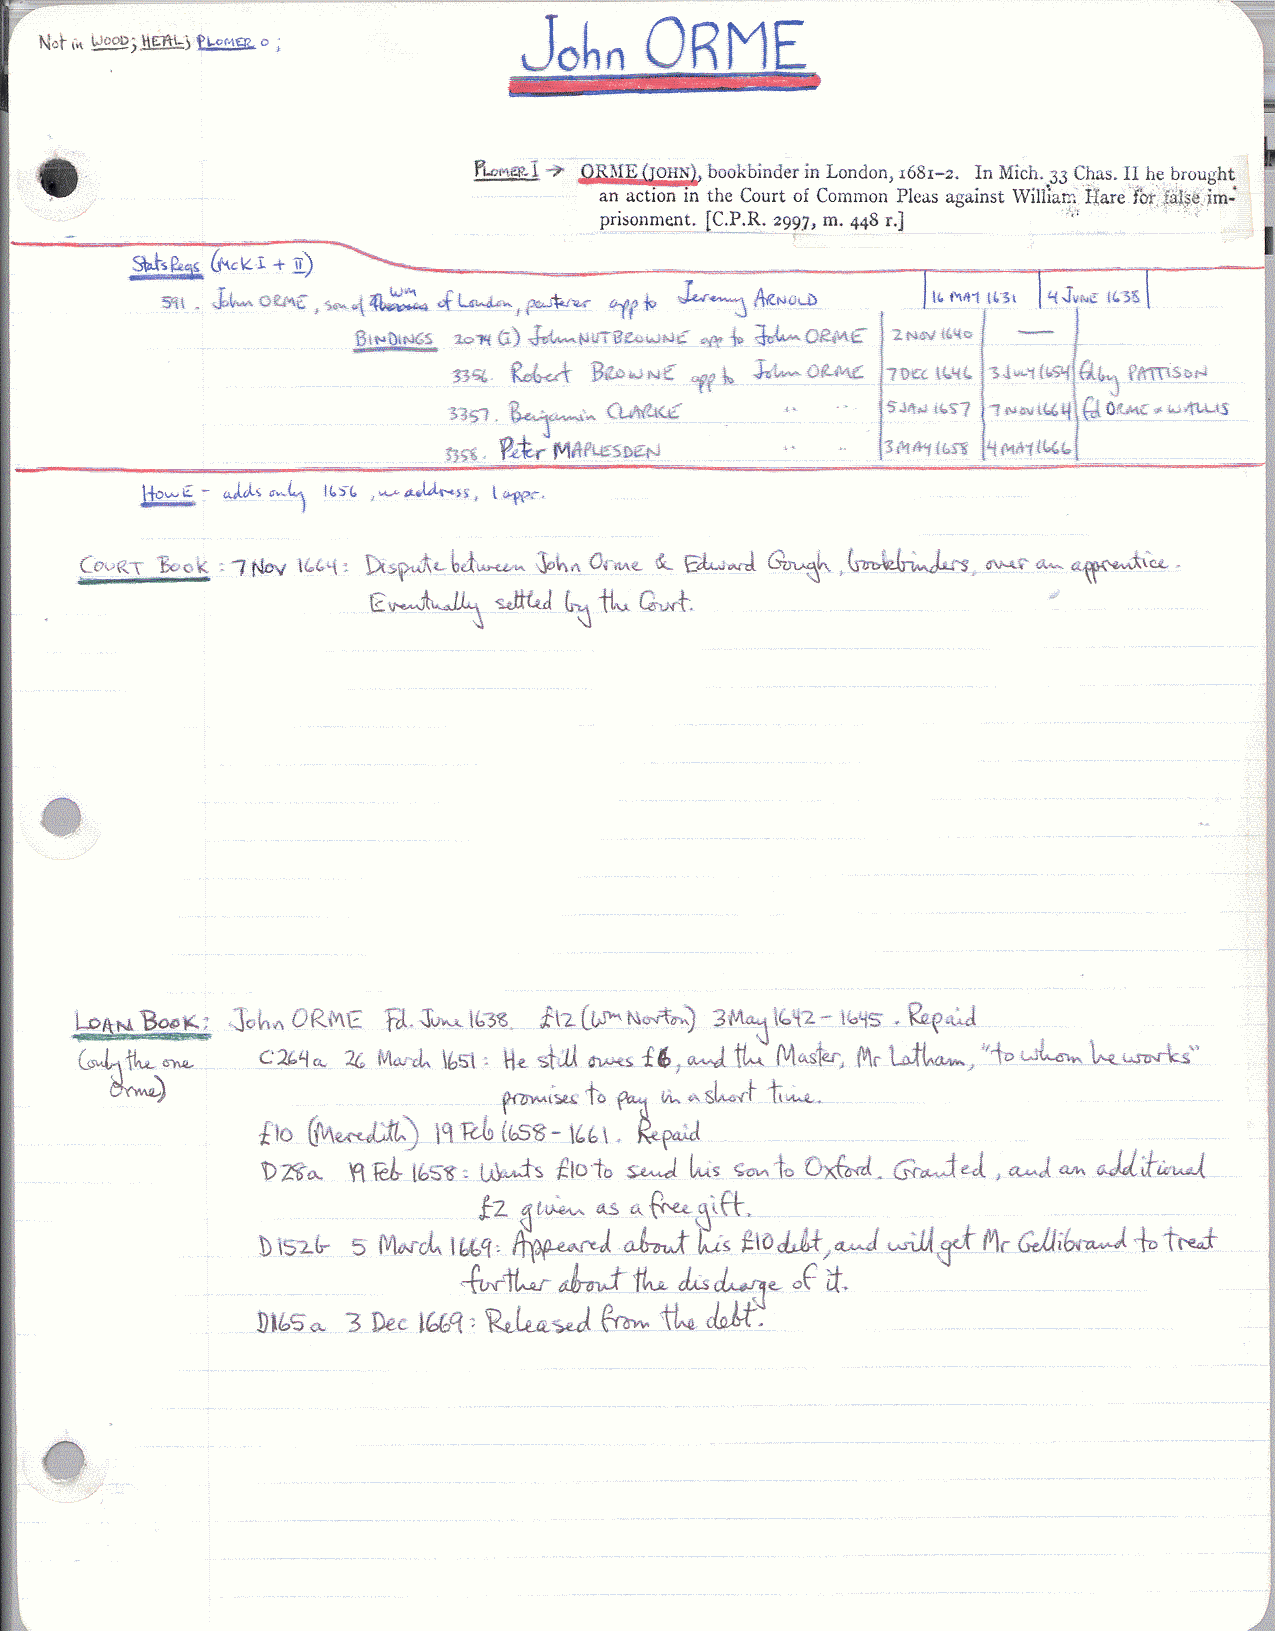 Not in WOOD; HEAL; PLOMER o;
John ORME
PLOMER I → ORME (JOHN), bookbinder in London, 1681–2. In Mich. 33 Chas. II he brought
an action in the Court of Common Pleas against William Hare for false im-
prisonment. [C.P.R. 2997, m. 448 r.]
Stats Regs (McK I + II)
591. John ORME, son of Wm of London, pewterer app to Jeremy ARNOLD 16 MAY 1631 4 JUNE 1638
BINDINGS 2074 (I) John NUTBROWNE app to John ORME 2 NOV 1640 —
3356. Robert BROWNE app to John ORME 7 DEC 1646 3 JULY 1654 fd by PATTISON
3357. Benjamin CLARKE " " 5 JAN 1657 7 NOV 1664 fd ORME & WALLIS
3358. Peter MAPLESDEN " " 3 MAY 1658 4 MAY 1666
HOWE – adds only 1656, no address, 1 appr.
COURT BOOK: 7 Nov 1664: Dispute between John Orme & Edward Gough, bookbinders, over an apprentice.
Eventually settled by the Court.
LOAN BOOK: John ORME Fd. June 1638. £12 (Wm Norton) 3 May 1642 – 1645. Repaid
(only the one Orme)
C264a 26 March 1651: He still owes £6, and the Master, Mr Latham, "to whom he works"
promises to pay in a short time.
£10 (Meredith) 19 Feb 1658 – 1661. Repaid
D28a 19 Feb 1658: Wants £10 to send his son to Oxford. Granted, and an additional
£2 given as a free gift.
D152b 5 March 1669: Appeared about his £10 debt, and will get Mr Gellibrand to treat
further about the discharge of it.
D165a 3 Dec 1669: Released from the debt.